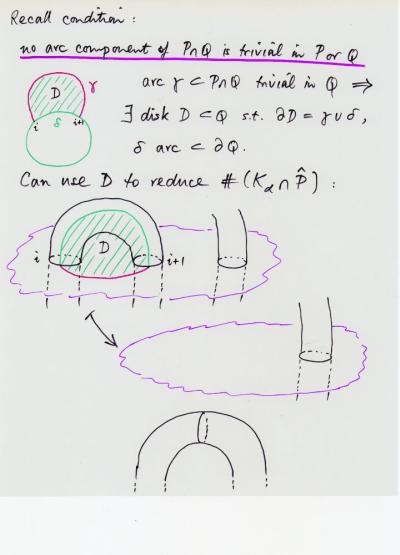 Recall condition:
no arc component of P∩Q is trivial in P or Q
D
γ
i
δ
i+1
arc γ ⊂ P∩Q trivial in Q ⇒
∃ disk D ⊂ Q s.t. ∂D = γ∪δ,
δ arc ⊂ ∂Q.
Can use D to reduce #(K_α ∩ P̂):
D
i
i+1